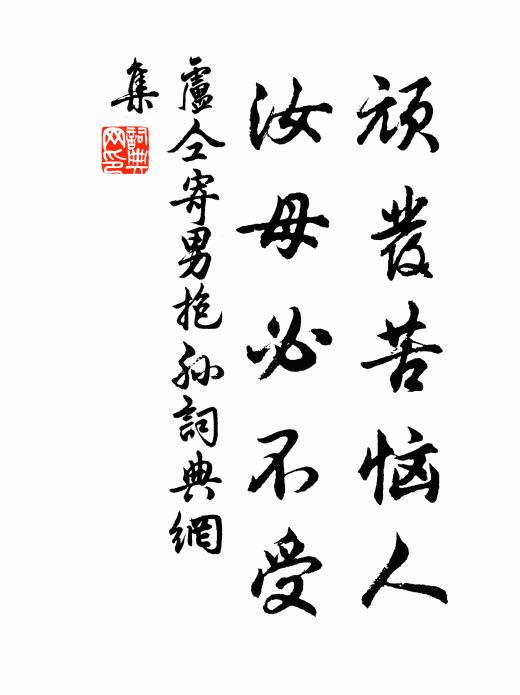 頑發苦恼人
汝母必不受
盧仝寄男抱孙詞典網
集
詞典网印